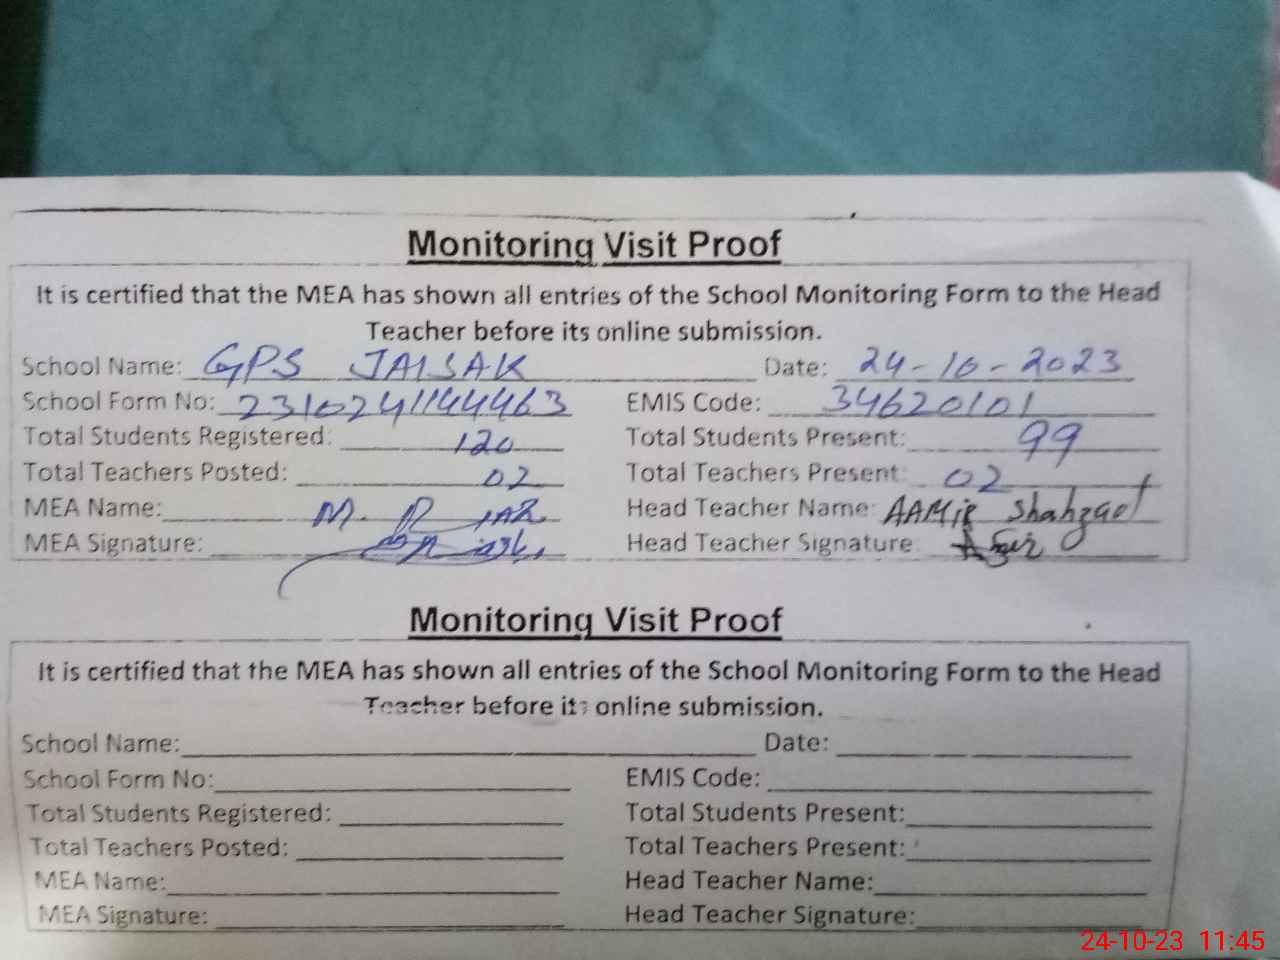 Monitoring Visit Proof
It is certified that the MEA has shown all entries of the School Monitoring Form to the Head
Teacher before its online submission.
School Name: GPS JAISAK Date: 24-10-2023
School Form No: 2310241144463 EMIS Code: 34620101
Total Students Registered: 120 Total Students Present: 99
Total Teachers Posted: 02 Total Teachers Present: 02
MEA Name: M. Head Teacher Name: AAMIR Shahzad
MEA Signature: Head Teacher Signature
Monitoring Visit Proof
It is certified that the MEA has shown all entries of the School Monitoring Form to the Head
Teacher before its online submission.
School Name: Date:
School Form No: EMIS Code:
Total Students Registered: Total Students Present:
Total Teachers Posted: Total Teachers Present:
MEA Name: Head Teacher Name:
MEA Signature: Head Teacher Signature:
24-10-23 11:45